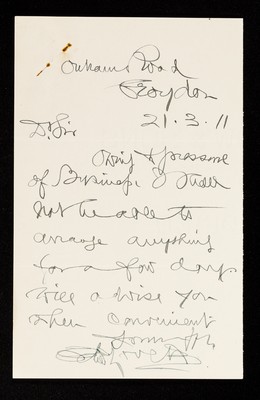 Road
Croydon
21.3.11
Dr Sir
Owing to pressure
of Business I shall
not be able to
arrange anything
for a few days
will advise you
when convenient